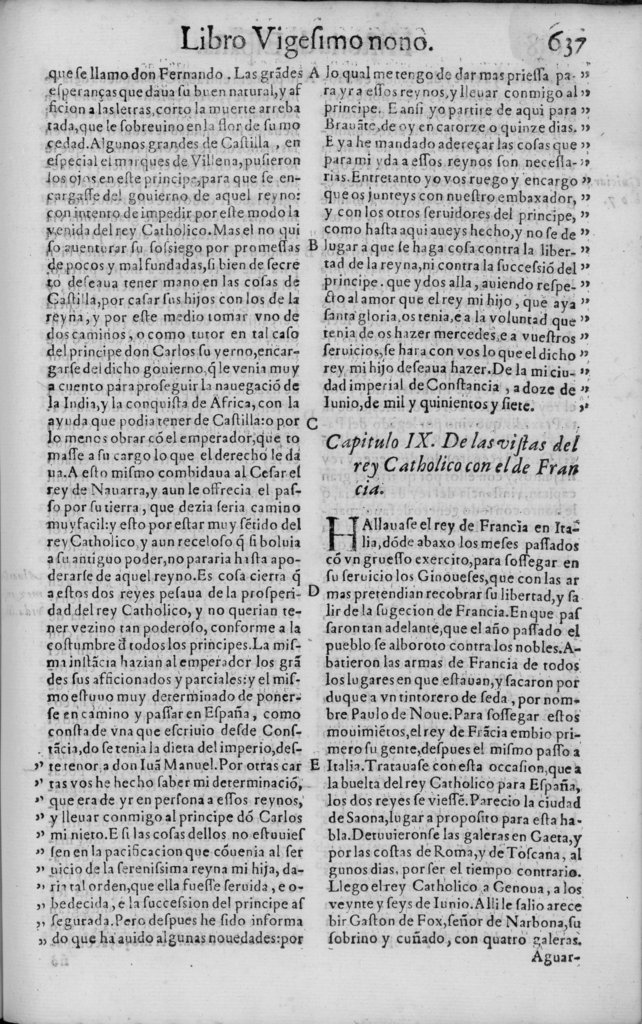 Libro Vigesimo nono. 637
que se llamo don Fernando. Las grãdes
esperanças que daua su buen natural, y af
ficion a las letras, corto la muerte arreba
tada, que le sobreuino en la flor de su mo
cedad. Algunos grandes de Castilla, en
especial el marques de Villena, pusieron
los ojos en este principe, para que se en-
cargasse del gouierno de aquel reyno:
con intento de impedir por este modo la
venida del rey Catholico. Mas el no qui
so auenturar su sossiego por promessas
de pocos y mal fundadas, si bien de secre
to desseaua tener mano en las cosas de
Castilla, por casar sus hijos con los de la
reyna, y por este medio tomar vno de
dos caminos, o como tutor en tal caso
del principe don Carlos su yerno, encar-
garse del dicho gouierno, q̃ le venia muy
a cuento para proseguir la nauegació de
la India, y la conquista de Africa, con la
ayuda que podia tener de Castilla: o por
lo menos obrar có el emperador, que to
masse a su cargo lo que el derecho le da
ua. A esto mismo combidaua al Cesar el
rey de Nauarra, y aun le offrecia el pas-
so por su tierra, que dezia seria camino
muy facil: y esto por estar muy sétido del
rey Catholico y aun receloso q̃ si boluia
a su antiguo poder, no pararia hasta apo-
derarse de aquel reyno. Es cosa cierta q̃
a estos dos reyes pesaua de la prosperi-
dad del rey Catholico, y no querian te-
ner vezino tan poderoso, conforme a la
costumbre d̃ todos los principes. La mis-
ma instãcia hazian al emperador los grã
des sus afficionados y parciales: y el mis-
mo estuuo muy determinado de poner-
se en camino y passar en España, como
consta de vna que escriuio desde Cons-
tãcia, do se tenia la dieta del imperio, des-
te tenor a don Iuã Manuel. Por otras car
” tas vos he hecho saber mi determinació,
” que era de yr en persona a essos reynos,
” y lleuar conmigo al principe dó Carlos
” mi nieto. E si las cosas dellos no estuuies
” sen en la pacificacion que cóuenia al ser
” uicio de la serenissima reyna mi hija, da-
” ria tal orden, que ella fuesse seruida, e o-
” bedecida, e la succession del principe as
” segurada. Pero despues he sido informa
” do que ha auido algunas nouedades: por
A lo qual me tengo de dar mas priessa pa- ”
ra yr a essos reynos, y lleuar conmigo al ”
principe. E ansi yo partire de aqui para ”
Brauãte, de oy en catorze o quinze dias. ”
E ya he mandado adereçar las cosas que ”
para mi yda a essos reynos son necessa- ”
rias. Entretanto yo vos ruego y encargo ”
que os junteys con nuestro embaxador, ”
y con los otros seruidores del principe, ”
como hasta aqui aueys hecho, y no se de ”
B lugar a que se haga cosa contra la liber- ”
tad de la reyna, ni contra la successió del ”
principe. que y dos alla, auiendo respe- ”
cto al amor que el rey mi hijo, que aya ”
santa gloria, os tenia, e a la voluntad que ”
tenia de os hazer mercedes, e a vuestros ”
seruicios, se hara con vos lo que el dicho ”
rey mi hijo deseaua hazer. De la mi ciu- ”
dad imperial de Constancia, a doze de ”
Iunio, de mil y quinientos y siete. ”
C
Capitulo IX. De las vistas del
rey Catholico con el de Fran
cia.
HAllauase el rey de Francia en Ita-
lia, dóde abaxo los meses passados
có vn gruesso exercito, para sossegar en
su seruicio los Ginoueses, que con las ar
D mas pretendian recobrar su libertad, y sa
lir de la sugecion de Francia. En que pas
saron tan adelante, que el año passado el
pueblo se alboroto contra los nobles. A-
batieron las armas de Francia de todos
los lugares en que estauan, y sacaron por
duque a vn tintorero de seda, por nom-
bre Paulo de Noue. Para sossegar estos
mouimiétos, el rey de Frãcia embio pri-
mero su gente, despues el mismo passo a
E Italia. Tratauase con esta occasion, que a
la buelta del rey Catholico para España,
los dos reyes se viessé. Parecio la ciudad
de Saona, lugar a proposito para esta ha-
bla. Detuuieronse las galeras en Gaeta, y
por las costas de Roma, y de Toscana, al
gunos dias, por ser el tiempo contrario.
Llego el rey Catholico a Genoua, a los
veynte y seys de Iunio. Alli le salio a rece
bir Gaston de Fox, señor de Narbona, su
sobrino y cuñado, con quatro galeras.
Aguar-